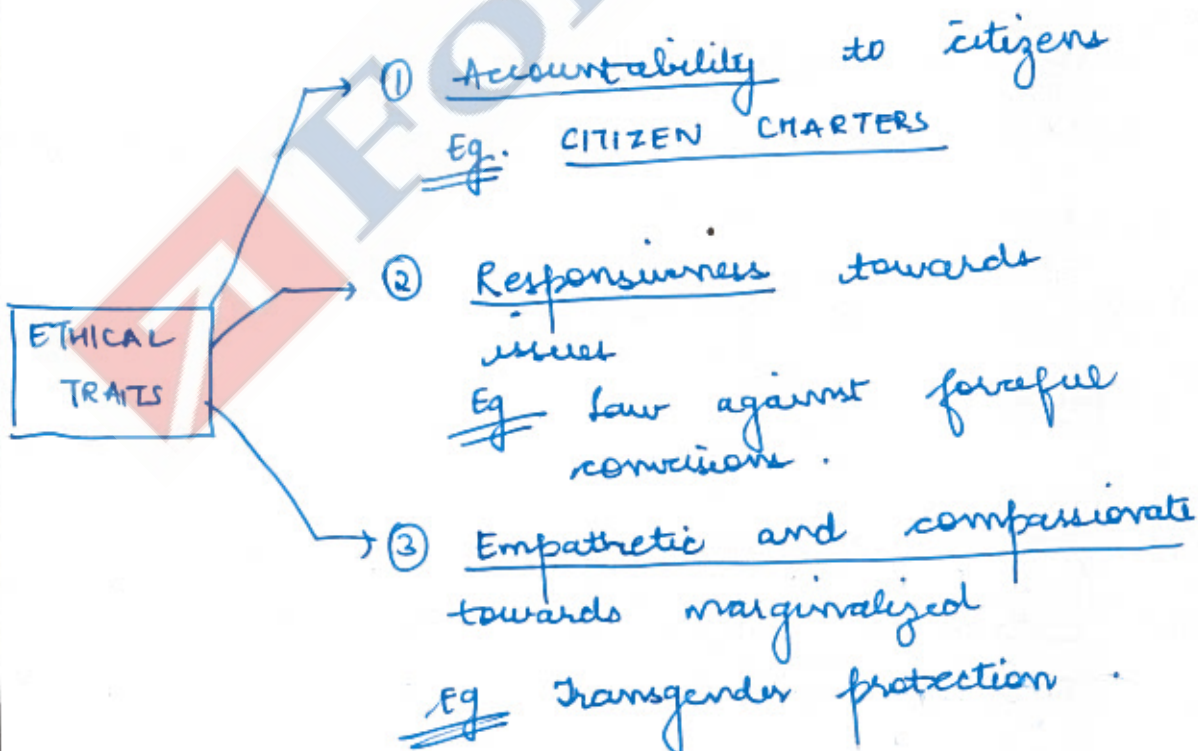 ETHICAL
TRAITS
① Accountability to citizens
Eg. CITIZEN CHARTERS
② Responsiveness towards
issues
Eg Law against forceful
conversions.
③ Empathetic and compassionate
towards marginalized
Eg Transgender protection.